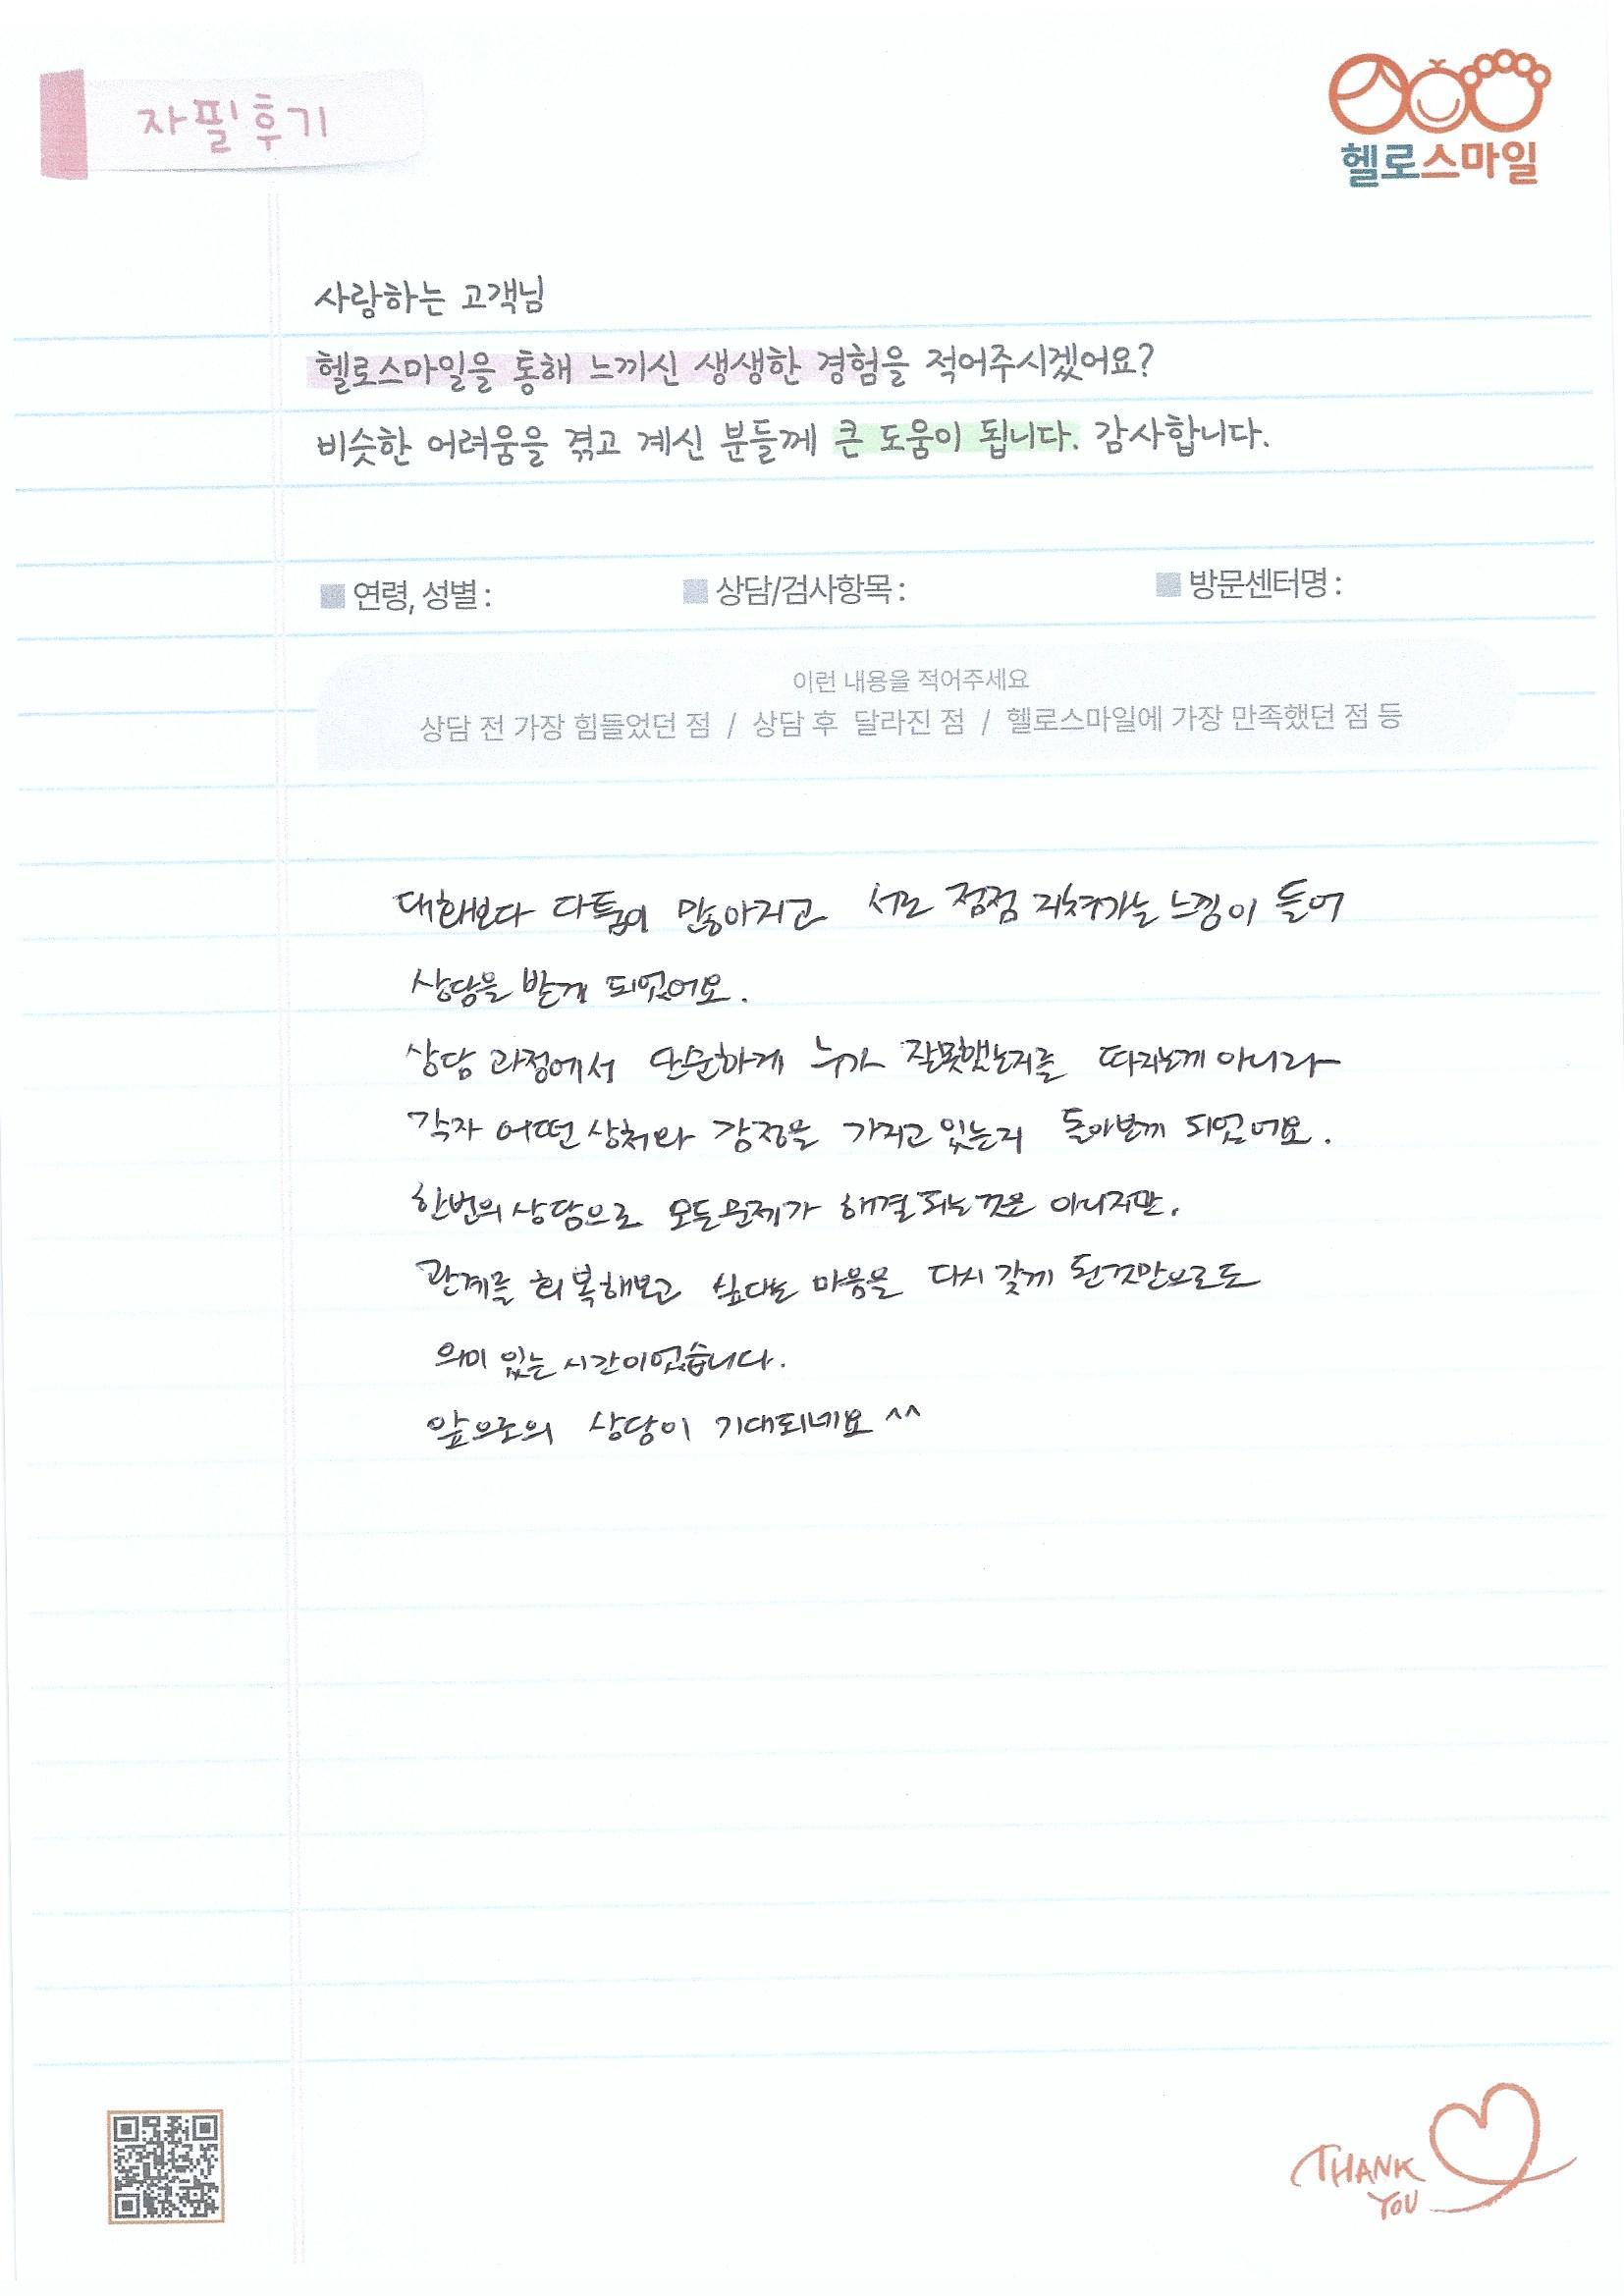 자필후기
헬로스마일
사랑하는 고객님
헬로스마일을 통해 느끼신 생생한 경험을 적어주시겠어요?
비슷한 어려움을 겪고 계신 분들께 큰 도움이 됩니다. 감사합니다.
연령, 성별 : 상담/검사항목 : 방문센터명 :
이런 내용을 적어주세요
상담 전 가장 힘들었던 점 / 상담 후 달라진 점 / 헬로스마일에 가장 만족했던 점 등
대화보다 다툼이 많아지고 서로 점점 지쳐가는 느낌이 들어
상담을 받게 되었어요.
상담 과정에서 단순하게 누가 잘못했는지를 따지는게 아니라
각자 어떤 상처와 감정을 가지고 있는지 돌아보게 되었어요.
한번의 상담으로 모든 문제가 해결되는 것은 아니지만,
관계를 회복해보고 싶다는 마음을 다시 갖게 된것만으로도
의미 있는 시간이었습니다.
앞으로의 상담이 기대되네요 ^^
THANK
YOU